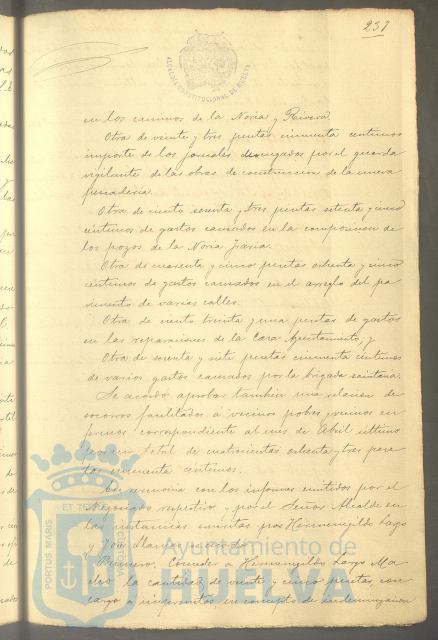 237
ALCALDIA CONSTITUCIONAL DE HUELVA
en los caminos de la Noria y Rivera
Otra de veinte y tres pesetas cincuenta centimos
importe de los jornales devengados por el guarda
vigilante de las obras de construccion de la nueva
pescaderia.
Otra de ciento sesenta y tres pesetas setenta y cinco
centimos de gastos causados en la composicion de
los pozos de la Noria
Otra de cuarenta y cinco pesetas ochenta y cinco
centimos de gastos causados en el arreglo del pa
vimento de varias calles.
Otra de ciento treinta y una pesetas de gastos
en las reparaciones de la Casa Ayuntamiento, y
Otra de sesenta y siete pesetas cincuenta centimos
de varios gastos causados por la brigada sanitaria.
Se acordó aprobar tambien una relacion de
socorros facilitados á vecinos pobres y
correspondiente al mes de Abril ultimo
por un total de cuatrocientas ochenta y tres pese
tas cincuenta centimos.
En armonia con los informes emitidos por el
Negociado respectivo y por el Señor Alcalde en
las instancias suscritas por Hermenegildo Lago
y
Primero. Conceder a Hermenegildo Lago
la cantidad de veinte y cinco pesetas con
cargo a imprevistos en concepto de indemnizacion
PORTUS MARIS
ET TE
Ayuntamiento de
HUELVA